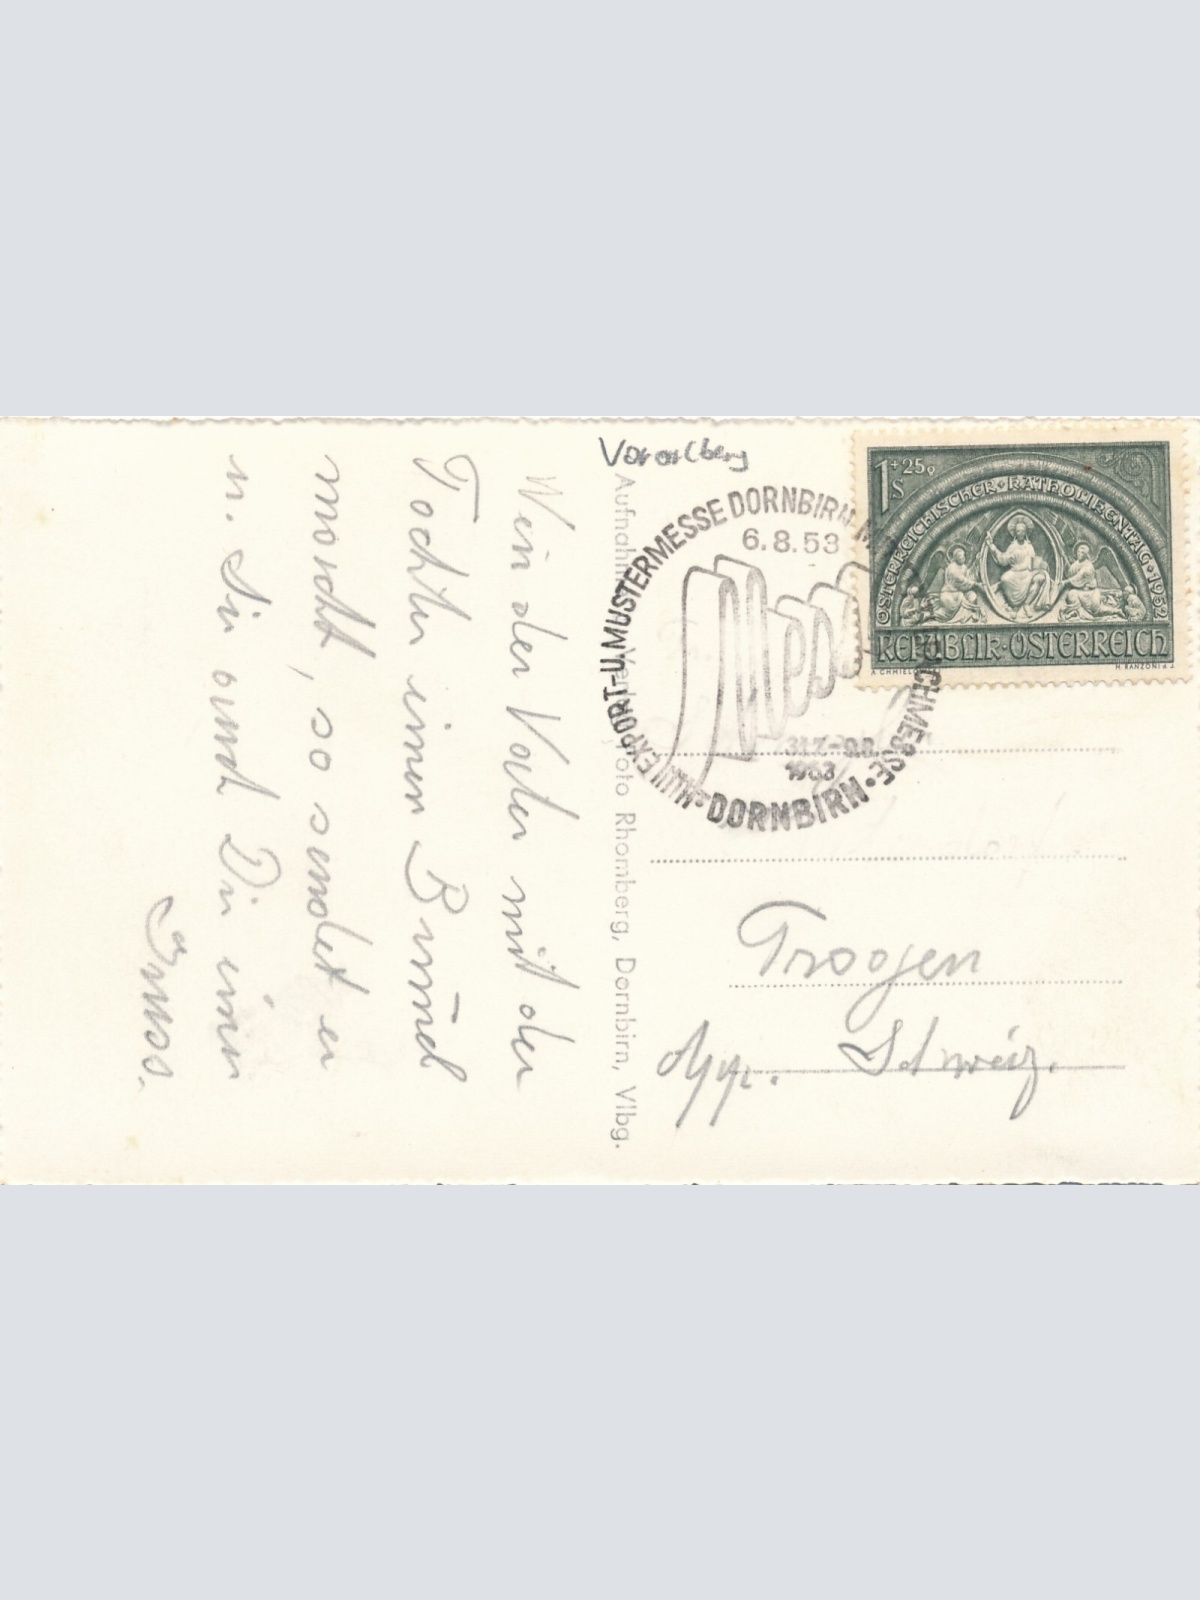 Vorarlberg
Wen der Vater mit der
Tochter einen Bumel
macht, so sendet er
u. Sie auch Dir einen
Gruss.
Aufnahme Verlag Foto Rhomberg, Dornbirn, Vlbg.
EXPORT-U.MUSTERMESSE DORNBIRN
6.8.53
Messe
31.7.-9.8.
1953
DORNBIRN
1S+25g
ÖSTERREICHISCHER·KATHOLIKENTAG·1952
REPUBLIK·ÖSTERREICH
H. RANZONI d. J.
Troogen
App. Schweiz.